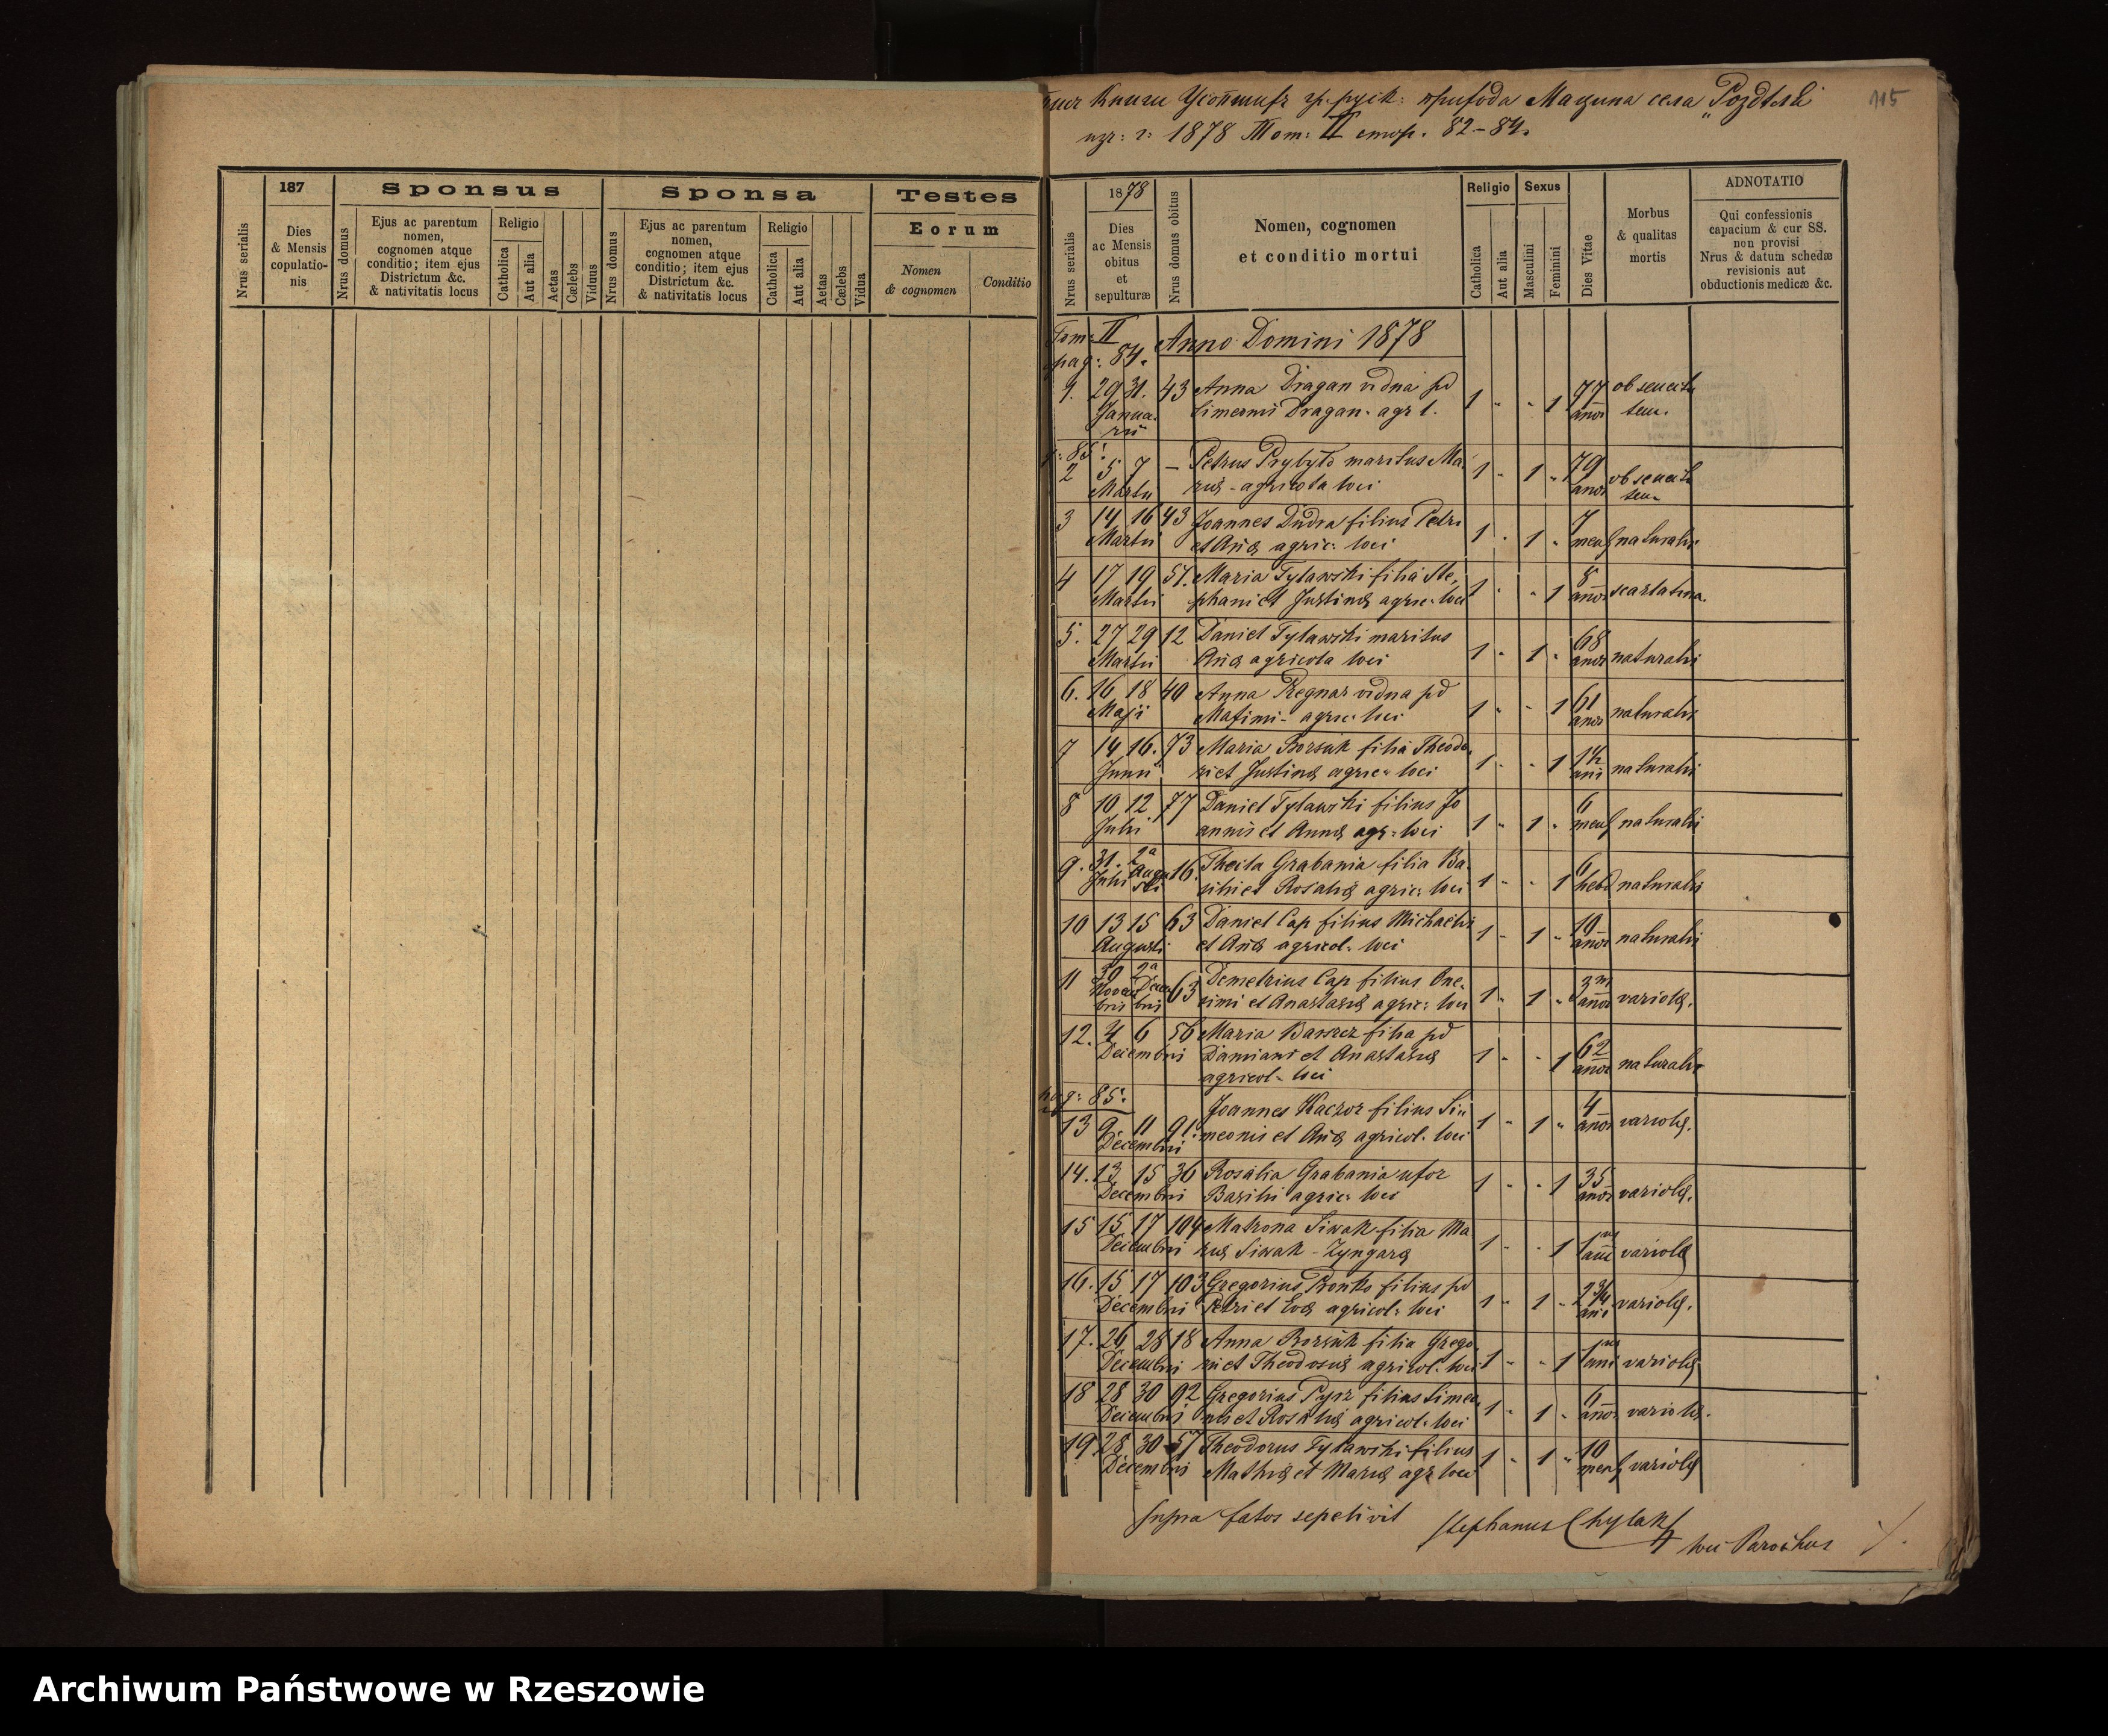 115
Книги Усопшихъ гр. руск: прихода Мацина села „Роздѣля
изъ: г: 1878 Том: II стор. 82-84.
187
Sponsus
Sponsa
Testes
Nrus serialis
Dies
& Mensis
copulatio-
nis
Nrus domus
Ejus ac parentum
nomen,
cognomen atque
conditio; item ejus
Districtum &c.
& nativitatis locus
Religio
Catholica
Aut alia
Aetas
Cælebs
Viduus
Nrus domus
Ejus ac parentum
nomen,
cognomen atque
conditio; item ejus
Districtum &c.
& nativitatis locus
Religio
Catholica
Aut alia
Aetas
Cælebs
Vidua
Eorum
Nomen
& cognomen
Conditio
Nrus serialis
1878
Dies
ac Mensis
obitus
et
sepulturæ
Nrus domus obitus
Nomen, cognomen
et conditio mortui
Religio
Catholica
Aut alia
Sexus
Masculini
Feminini
Dies Vitae
Morbus
& qualitas
mortis
ADNOTATIO
Qui confessionis
capacium & cur SS.
non provisi
Nrus & datum schedæ
revisionis aut
obductionis medicæ &c.
Tom: II
pag: 84.
Anno Domini 1878
1. 29 31. 43 Anna Dragan vidua pd 1 " " 1 77 ob senectu
Januarii Simeonis Dragan. agr l. anor tem.
p: 85:
2 5 7 – Petrus Prybyło maritus Ma 1 " 1 " 79 ob senectu
Martii riæ - agricola loci anor tem
3 14 16 43 Joannes Dudra filius Petri 1 " 1 " 7
Martii et Añæ agric: loci mens naturalis
4 17 19 57. Maria Tylawski filia Ste, 1 " " 1 8
Martii phani et Justinæ agric: loci anor scarlatina.
5. 27 29 12 Daniel Tylawski maritus 1 " 1 " 68
Martii Añæ agricola loci anor naturalis
6. 16 18 40 Anna Regnar vidua pd 1 " " 1 61
Maji Maximi - agric: loci anor naturalis
7 14 16. 73 Maria Borsuk filia Theodo, 1 " " 1 1½
Junii ri et Justinæ agric: loci ani naturalis
8 10 12. 77 Daniel Tylawski filius Jo 1 " 1 " 6
Julii annis et Annæ agr: loci mens naturalis
9. 31. 2a 16. Thecla Grabania filia Ba 1 " " 1 6
Julii Augusti silii et Rosaliæ agric: loci hebd naturalis
10 13 15 63 Daniel Cap filius Michaelis 1 " 1 " 10
Augusti et Añæ agricol. loci anor naturalis
11 30 2a 63 Demetrius Cap filius One, 1 " 1 " 3
Novembris Decembris simi et Anastasiæ agric: loci anor variolæ.
12. 4 6 56 Maria Baszez filia pd 1 " " 1 62
Decembris Damiani et Anastasiæ anor naturalis
agricol. loci
pag: 85:
13 9 11 91. Joannes Kaczor filius Si 1 " 1 " 4
Decembris meonis et Añæ agricol. loci anor variolæ.
14. 13 15 36 Rosalia Grabania uxor 1 " " 1 35
Decembris Basilii agric: loci anor variolæ.
15 15 17 104 Matrona Siwak filia Ma 1 " " 1 1
Decembris riæ Siwak - Zyngaræ ani variolæ
16. 15 17 103 Gregorius Ronko filius pd 1 " 1 " 2¾
Decembris Petri et Evæ agricol. loci ani variolæ.
17. 26 28 18 Anna Borsuk filia Grego, 1 " " 1 1
Decembris rii et Theodosiæ agricol. loci ani variolæ
18 28 30 92 Gregorius Pyrz filius Simeo, 1 " 1 " 6
Decembris nis et Rosaliæ agricol. loci anor variolæ.
19 28 30 57 Theodorus Tylawski filius 1 " 1 " 10
Decembris Mathiæ et Mariæ agr loci mens variolæ
Supra fatos sepelivit Stephanus Chylak
loci Parochus
Archiwum Państwowe w Rzeszowie